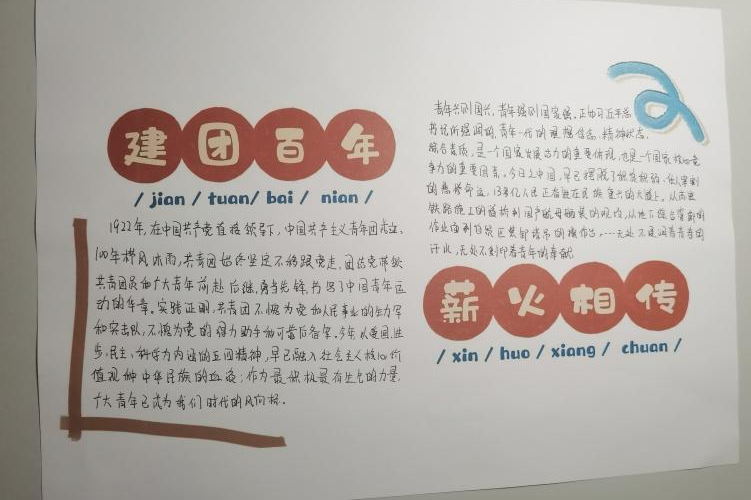 建团百年
/ jian / tuan / bai / nian /
1922年,在中国共产党直接领导下,中国共产主义青年团成立,
100年栉风沐雨,共青团始终坚定不移跟党走,团结带领
共青团员和广大青年前赴后继,勇当先锋,书写了中国青年运
动的华章。实践证明,共青团不愧为党和人民事业的生力军
和突击队,不愧为党的得力助手和可靠后备军。今年以爱国、进
步、民主、科学为内涵的五四精神,早已融入社会主义核心价
值观和中华民族的血液;作为最积极最有生气的力量,
广大青年已成为我们时代的风向标。
青年兴则国兴,青年强则国家强。正如习近平总
书记所强调的,青年一代的理想信念、精神状态、
综合素质,是一个国家发展活力的重要体现,也是一个国家核心竞
争力的重要因素。今日之中国,早已摆脱了
的悲惨命运,人民正奋进在民族复兴的大道上。从高原
铁路施工的
作业面到自贸区装卸
汗水,无处不刻印着青年的奉献
薪火相传
/ xin / huo / xiang / chuan /